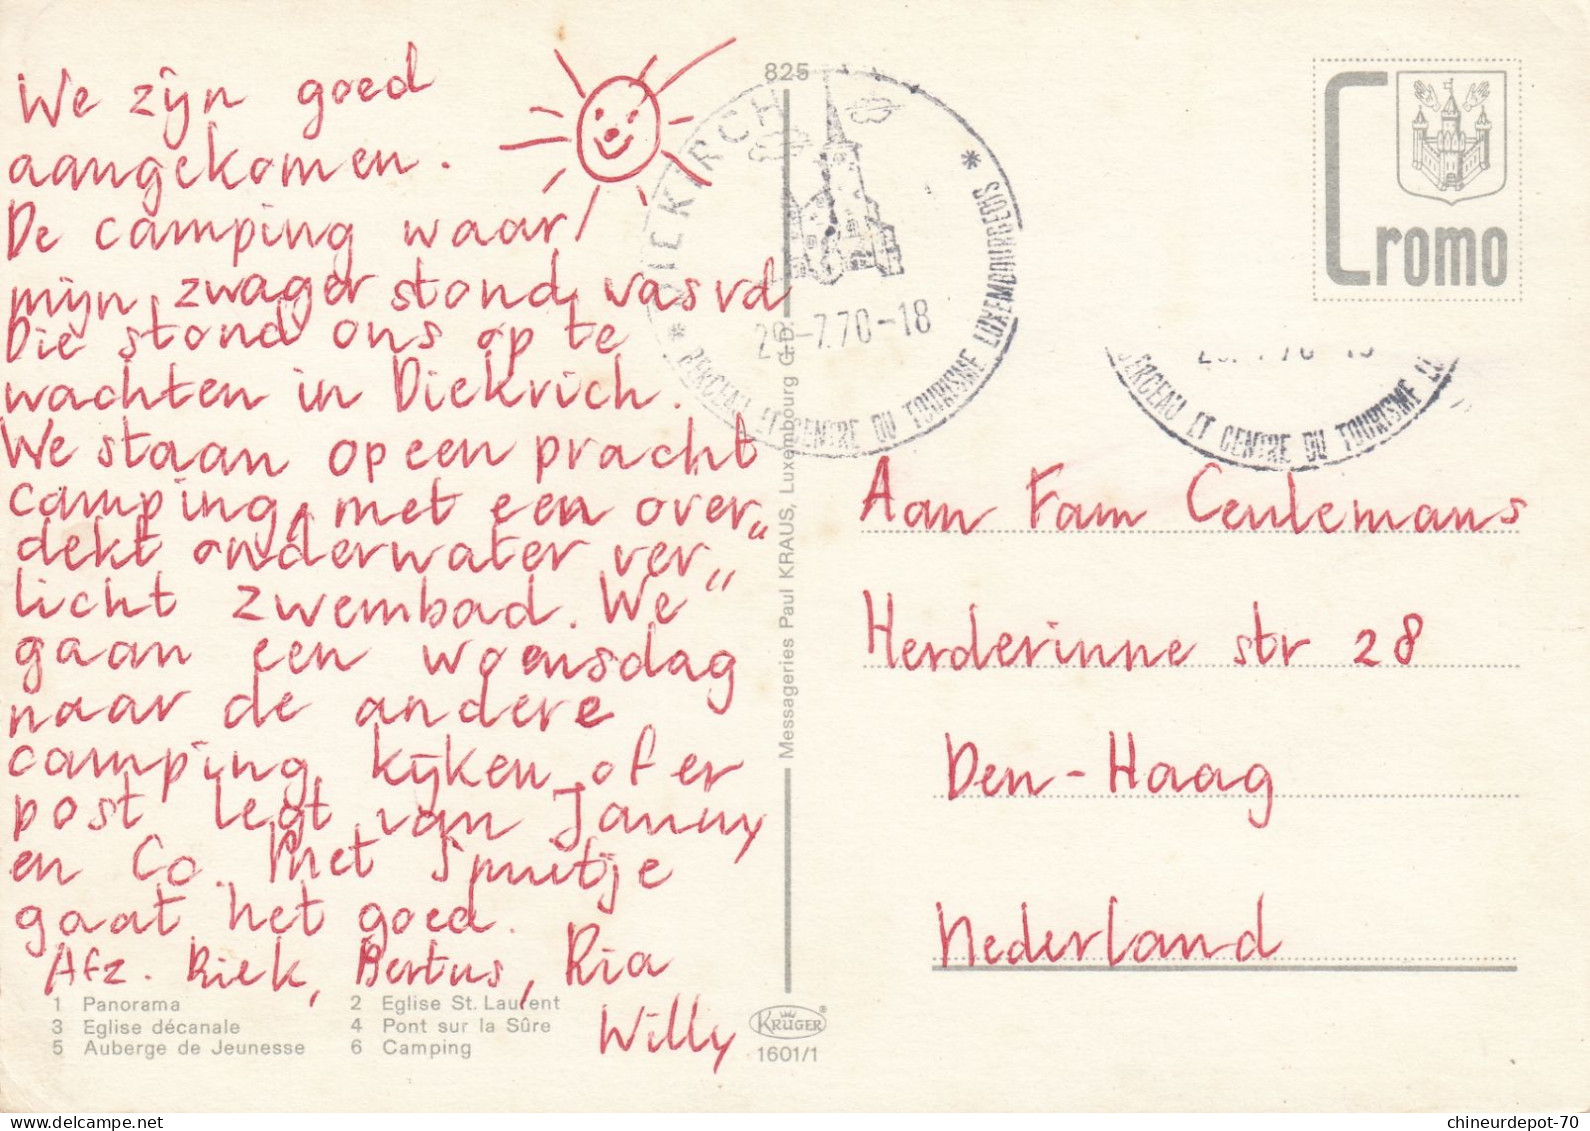 We zijn goed
aangekomen.
De camping waar
mijn zwager stond was vol
Die stond ons op te
wachten in Diekrich.
We staan op een pracht
camping, met een over„
dekt onderwater ver„
licht zwembad. We
gaan een woensdag
naar de andere
camping kijken of er
post legt van Janny
en Co. Met Spuitje
gaat het goed.
Afz. Riek, Bertus, Ria
Willy
1 Panorama
2 Eglise St. Laurent
3 Eglise décanale
4 Pont sur la Sûre
5 Auberge de Jeunesse
6 Camping
825
Messageries Paul KRAUS, Luxembourg G.D.
KRÜGER®
1601/1
DIEKIRCH
29-7.70-18
* BERCEAU ET CENTRE DU TOURISME LUXEMBOURGEOIS *
Cromo
BERCEAU ET CENTRE DU TOURISME LU
Aan Fam Ceulemans
Herderinne str 28
Den-Haag
Nederland
chineurdepot-70